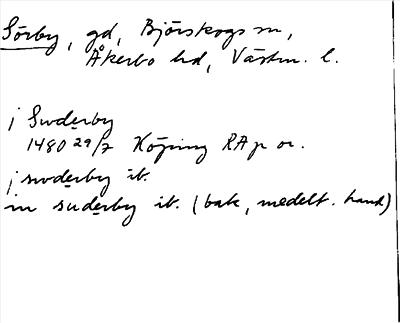 Sörby, gd, Björskogs sn,
Åkerbo hd, Västm. l.
j Swderby
1480 29/7 Köping RAp or.
j swderby ib.
in suderby ib. (bak, medelt. hand)